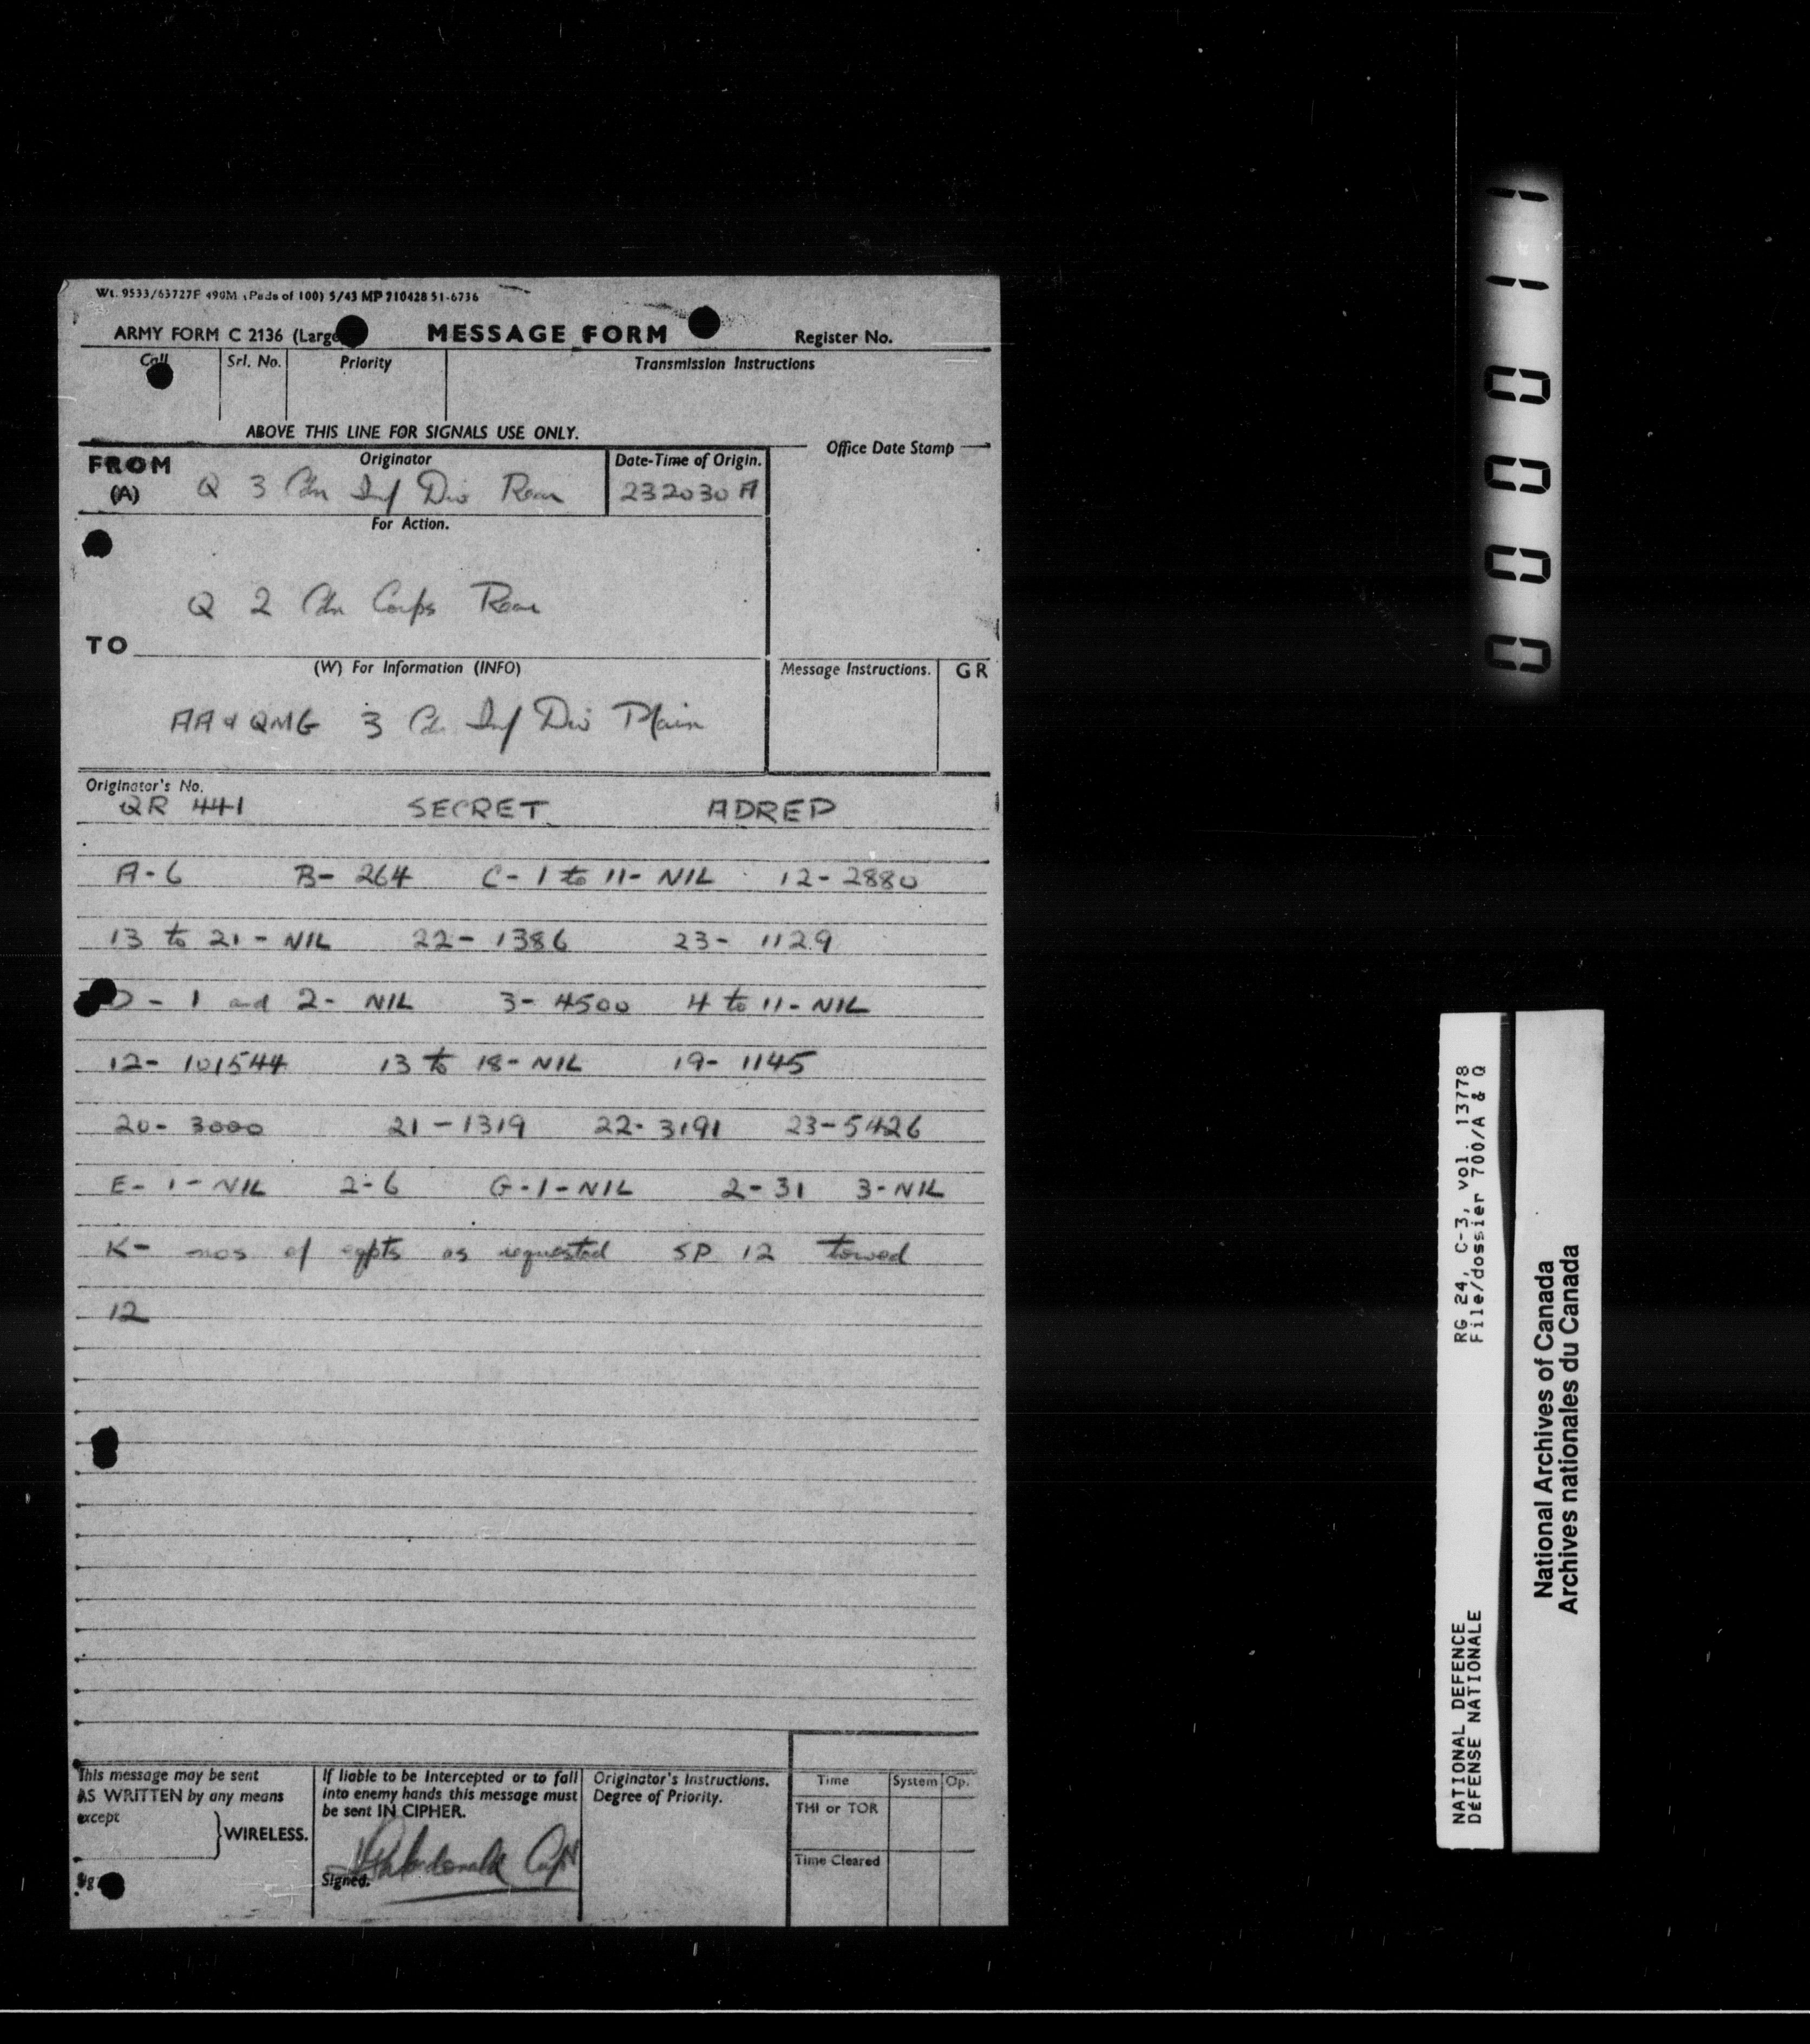 Wt. 9533/63727F 490M (Pads of 100) 5/43 MP 710428 51-6736
ARMY FORM C 2136 (Large MESSAGE FORM Register No.
Call Srl. No. Priority Transmission Instructions
ABOVE THIS LINE FOR SIGNALS USE ONLY.
Office Date Stamp
FROM Originator Date-Time of Origin.
(A) Q 3 Cdn Inf Div Rear 232030 A
For Action.
Q 2 Cdn Corps Rear
TO
(W) For Information (INFO) Message Instructions. GR
AA & QMG 3 Cdn Inf Div Main
Originator's No.
QR 441 SECRET ADREP
A-6 B- 264 C- 1 to 11- NIL 12- 2880
13 to 21 - NIL 22- 1386 23- 1129
D - 1 and 2- NIL 3- 4500 4 to 11- NIL
12- 101544 13 to 18- NIL 19- 1145
20- 3000 21 - 1319 22- 3191 23- 5426
E- 1 - NIL 2-6 G-1-NIL 2-31 3-NIL
K- nos of eqpts as requested SP 12 towed
12
This message may be sent
AS WRITTEN by any means
except
WIRELESS.
If liable to be intercepted or to fall
into enemy hands this message must
be sent IN CIPHER.
Signed.
Originator's Instructions.
Degree of Priority.
Time System Op.
THI or TOR
Time Cleared
000011
RG 24, C-3, vol. 13778
File/dossier 700/A & Q
NATIONAL DEFENCE
DÉFENSE NATIONALE
National Archives of Canada
Archives nationales du Canada